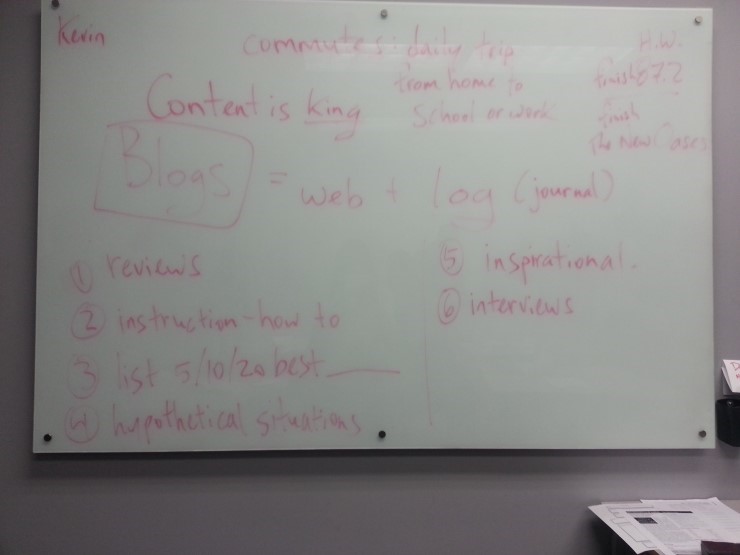 Kevin
commutes: daily trip
from home to
school or work
H.W.
finish 67.2
finish
The New Cases
Content is King
Blogs = web + log (journal)
① reviews
② instruction-how to
③ list 5/10/20 best ____
④ hypothetical situations
⑤ inspirational.
⑥ interviews